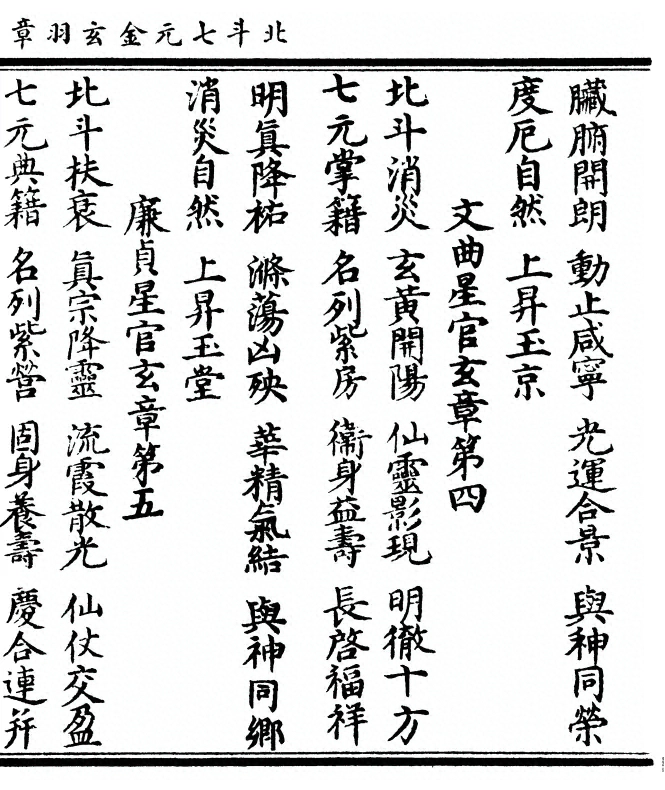 北斗七元金玄羽章
臟腑開朗 動止咸寧 光運合景 與神同榮
度厄自然 上昇玉京
文曲星官玄章第四
北斗消災 玄黃開陽 仙靈影現 明徹十方
七元掌籍 名列紫房 衞身益壽 長啓福祥
明眞降祐 滌蕩凶殃 華精氣結 與神同鄉
消災自然 上昇玉堂
廉貞星官玄章第五
北斗扶衰 眞宗降靈 流霞散光 仙仗交盈
七元典籍 名列紫營 固身養壽 慶合連并